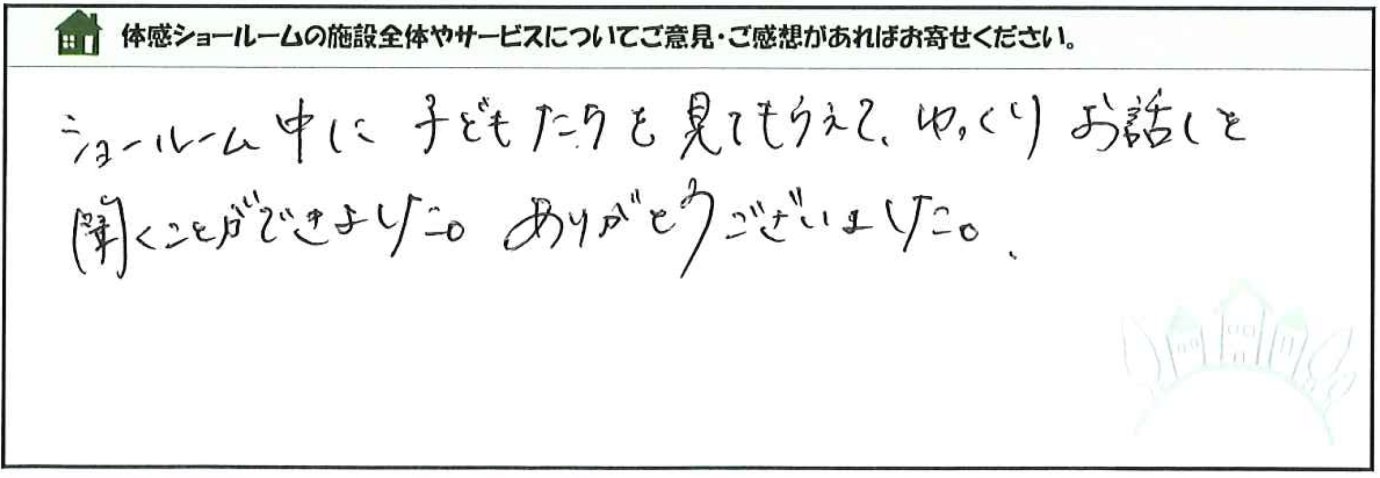 体感ショールームの施設全体やサービスについてご意見・ご感想があればお寄せください。
ショールーム中に子どもたちを見てもらえて、ゆっくりお話しを
聞くことができました。ありがとうございました。